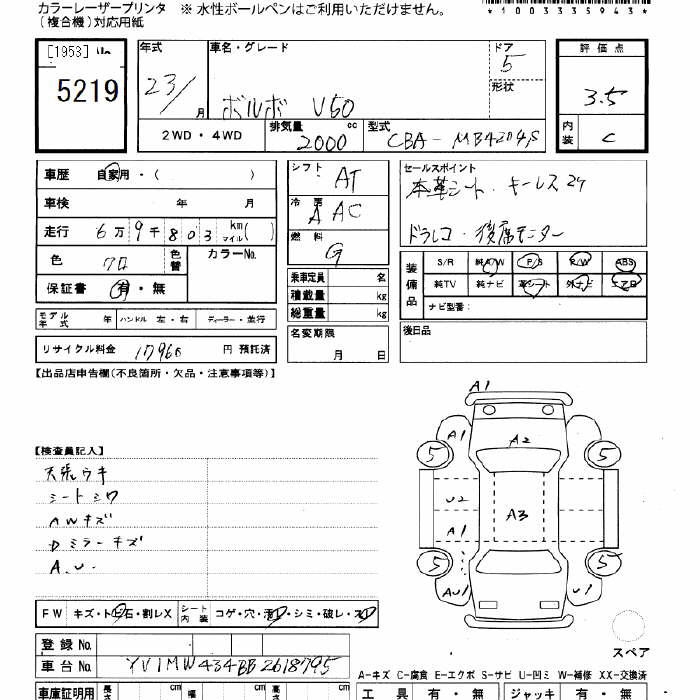 カラーレーザープリンタ ※ 水性ボールペンはご利用いただけません。
(複合機)対応用紙
*1003335943*
[1953]
5219
年式
23/
月
車名・グレード
ボルボ V50
ドア
5
形状
評価点
3.5
内装
C
2WD・4WD
排気量
2000 cc
型式
CBA-MB4204S
車歴 自家用・( )
車検 年 月
走行 6万9千803 km マイル( )
色 クロ 色替 カラーNo.
保証書 有・無
シフト AT
冷房 AAC
燃料 G
乗車定員 名
積載量 kg
総重量 kg
セールスポイント
本革シート・キーレス
ドラレコ・後席モニター
装備品
S/R 純A/W P/S P/W ABS
純TV 純ナビ 革シート 外ナビ エアB
ナビ型番:
モデル年式 年 ハンドル 左・右 ディーラー・並行
名変期限
月 日
後日品
リサイクル料金 17960 円 預託済
【出品店申告欄(不良箇所・欠品・注意事項等)】
A1
A1 A2
5 5
U2
A3
A1
5 5
AU1 U1
【検査員記入】
天張ウキ
シートシワ
AWキズ
Dミラーキズ
A.U.
FW キズ・ト石・割レX シート内装 コゲ・穴・・シミ・破レ・
スペア
登録 No.
車台 No. YV1MW434BB2618795
A-キズ C-腐食 E-エクボ S-サビ U-凹ミ W-補修 XX-交換済
車庫証明用 長さ cm 幅 cm cm
工具 有・無 ジャッキ 有・無